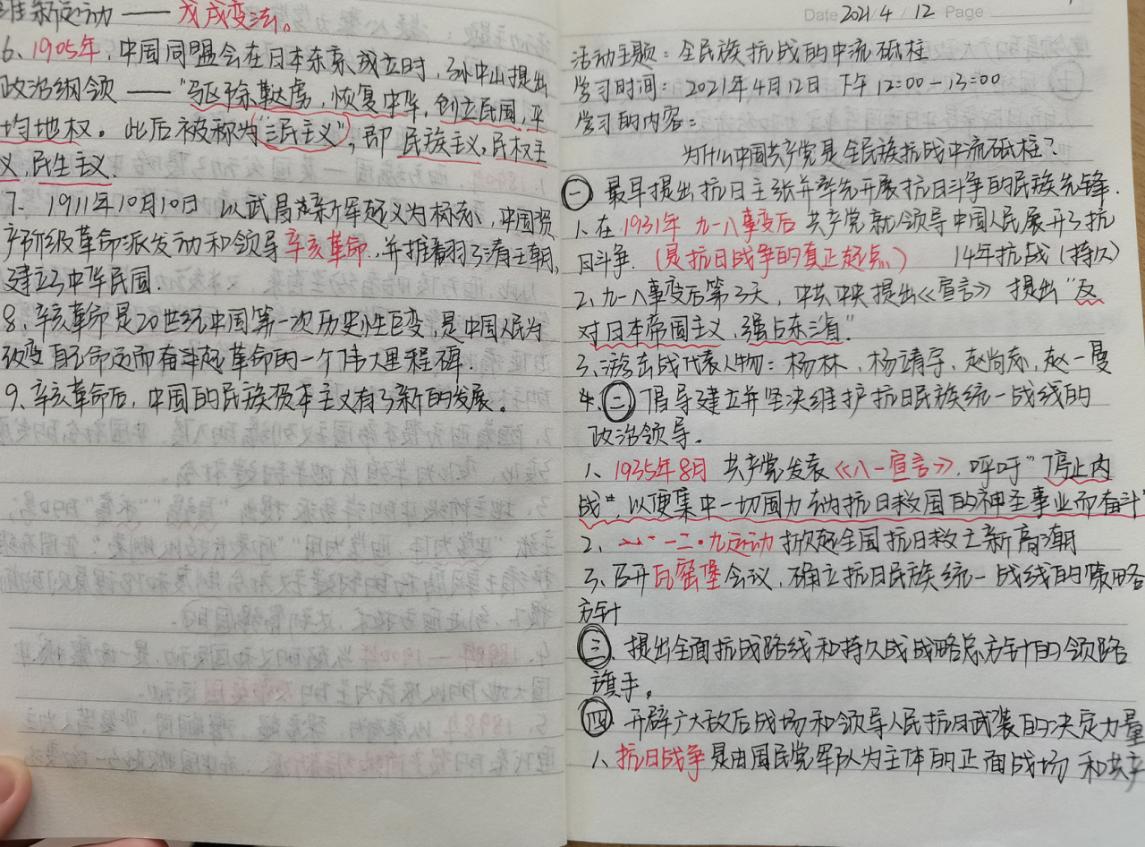 维新运动 —— 戊戌变法。
6、1905年，中国同盟会在日本东京成立时，孙中山提出
政治纲领 —— “驱除鞑虏，恢复中华，创立民国，平
均地权。此后被称为“三民主义”，即 民族主义，民权主
义，民生主义．
7、1911年10月10日 以武昌新军起义为标志，中国资
产阶级革命派发动和领导辛亥革命．并推翻了清王朝，
建立了中华民国．
8、辛亥革命是20世纪中国第一次历史性巨变，是中国人民为
改变自己命运而奋斗起革命的一个伟大里程碑．
9、辛亥革命后，中国的民族资本主义有了新的发展。
Date 2021 / 4 / 12 Page
活动主题：全民族抗战的中流砥柱
学习时间：2021年4月12日 下午 12:00－13:00
学习的内容：
为什么中国共产党是全民族抗战中流砥柱？
㊀ 最早提出抗日主张并率先开展抗日斗争的民族先锋．
1、在 1931年 九一八事变后 共产党就领导中国人民展开了抗
日斗争．(是抗日战争的真正起点) 14年抗战（持久）
2、九一八事变后第3天，中共中央提出《宣言》 提出“反
对日本帝国主义，强占东三省”
3、游击战代表人物：杨林、杨靖宇、赵尚志、赵一曼
4、㊁ 倡导建立并坚决维护抗日民族统一战线的
政治领导．
1、1935年8月 共产党发表《八一宣言》．呼吁“停止内
战”，以便集中一切国力去为抗日救国的神圣事业而奋斗”
2、一二·九运动 掀起全国抗日救亡新高潮
3、召开瓦窑堡会议，确立抗日民族统一战线的策略
方针
㊂、提出全面抗战路线和持久战战略总方针的领路
旗手。
㊃ 开辟广大敌后战场和领导人民抗日武装的决定力量
1、抗日战争是由国民党军队为主体的正面战场 和共产